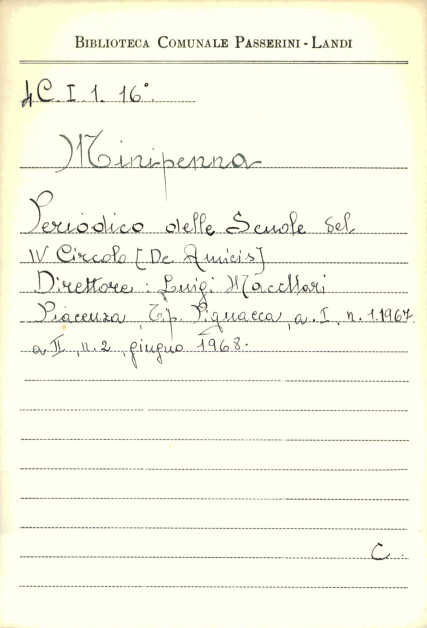 BIBLIOTECA COMUNALE PASSERINI - LANDI
4C. I. 1. 16°.
Minipenna
Periodico delle Scuole del
IV Circolo [De Amicis]
Direttore : Luigi
Piacenza, Tip. Pignacca, a. I, n. 1.1967
a II, n. 2, giugno 1968.
C.